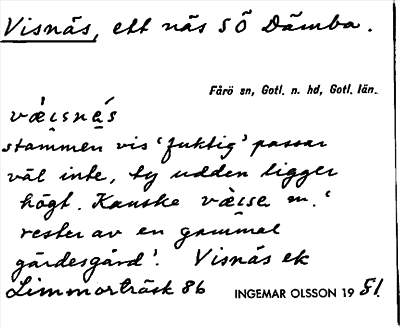 Visnäs, ett näs SÖ Dämba.
Fårö sn, Gotl. n. hd, Gotl. län.
væ̀ɩsnę́s
stammen vis 'fuktig' passar
väl inte, ty udden ligger
högt. Kanske væ̀ɩse m. '
rester av en gammal
gärdesgård'. Visnäs ek
Limmorträsk 86
INGEMAR OLSSON 1981.